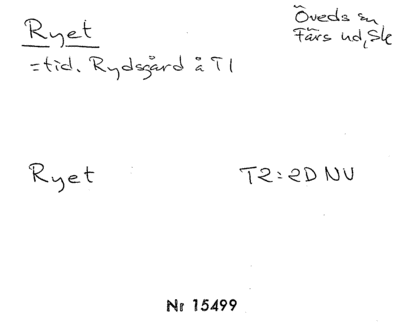 Ryet
Öveds sn
Färs hd, Sk
=tid. Rydsgård å T1
Ryet T2:2D NV
Nr 15499